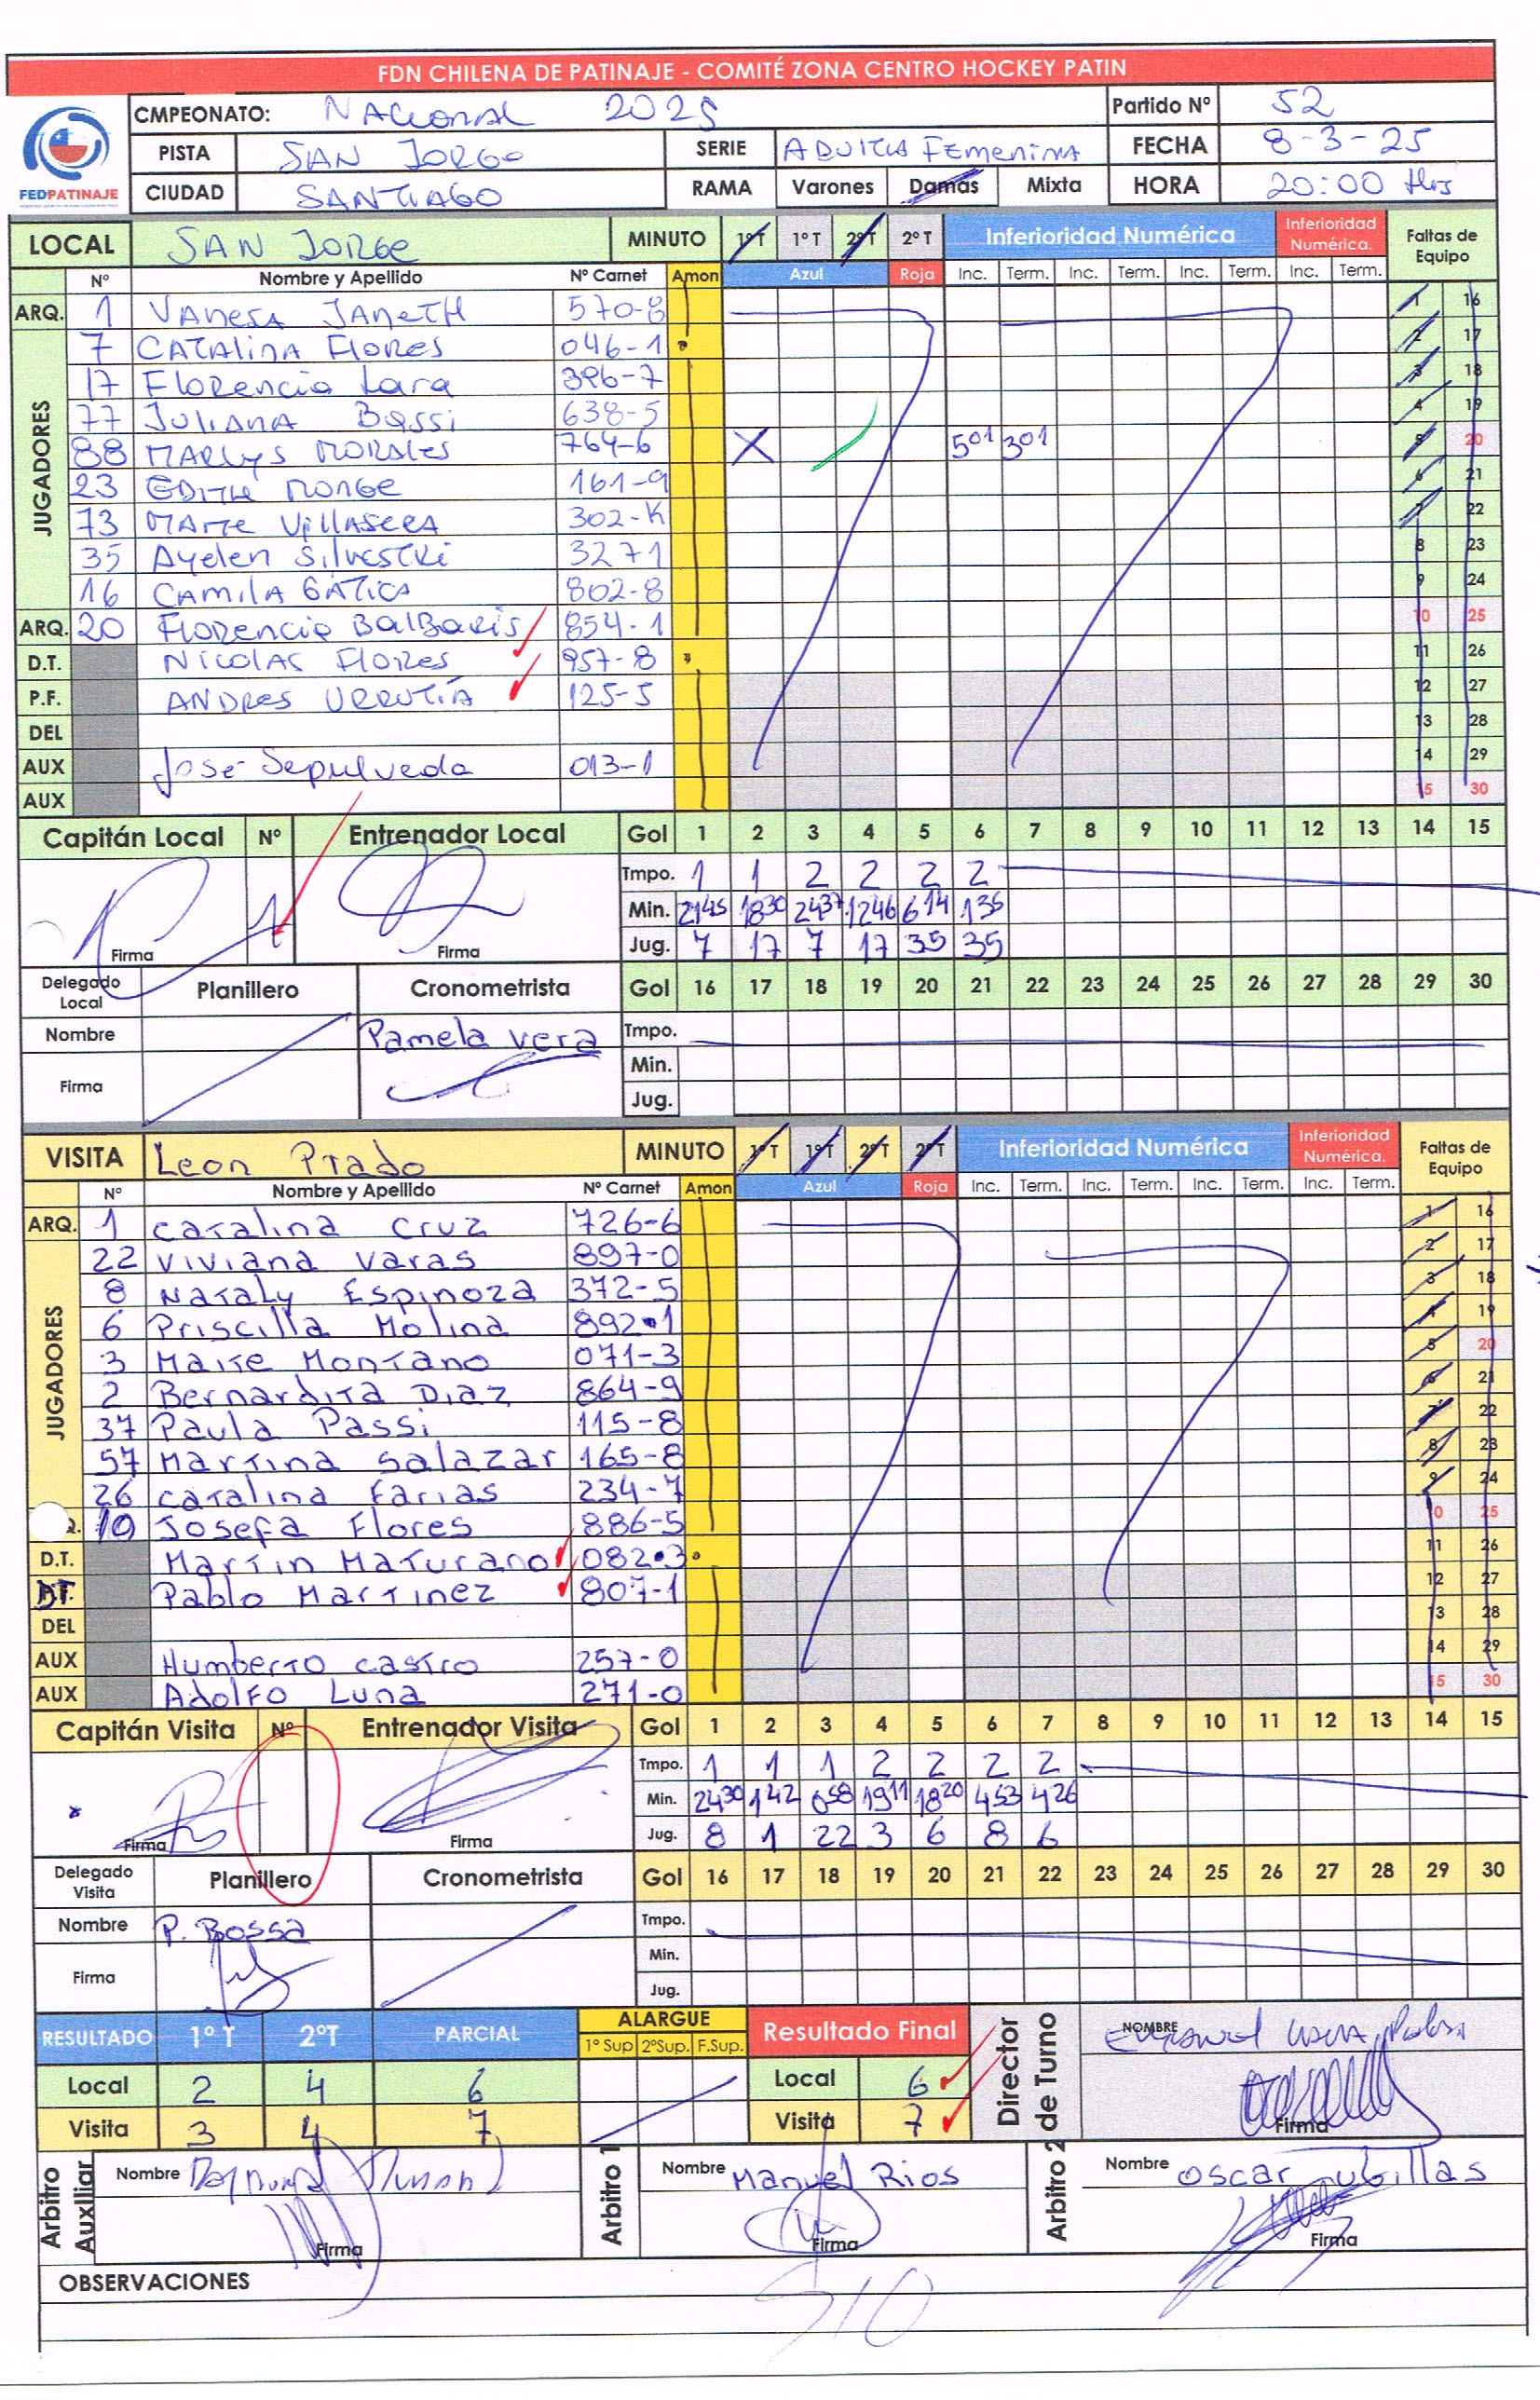 FDN CHILENA DE PATINAJE - COMITÉ ZONA CENTRO HOCKEY PATIN
FEDPATINAJE
CMPEONATO: NACIONAL 2025 Partido Nº 52
PISTA SAN JORGE SERIE ADULTA FEMENINA FECHA 8-3-25
CIUDAD SANTIAGO RAMA Varones Damas Mixta HORA 20:00 Hrs
LOCAL SAN JORGE MINUTO 1º T 1º T 2º T 2º T Inferioridad Numérica Inferioridad Numérica. Faltas de Equipo
Nº Nombre y Apellido Nº Carnet Amon Azul Roja Inc. Term. Inc. Term. Inc. Term. Inc. Term.
ARQ. 1 VANESA JANETH 570-8 1 16
JUGADORES
7 CATALINA FLORES 046-1 2 17
17 Florencia Lara 396-7 3 18
77 JULIANA BASSI 638-5 4 19
88 MARLYS MORALES 764-6 X 501 301 5 20
23 EDITH MONGE 161-9 6 21
73 MAITE VILLASECA 302-K 7 22
35 Ayelen Silvestri 3271 8 23
16 CAMILA GATICA 802-8 9 24
ARQ. 20 Florencia 854-1 10 25
D.T. NICOLAS FLORES 957-8 11 26
P.F. ANDRES URRUTÍA 125-5 12 27
DEL 13 28
AUX José Sepulveda 013-1 14 29
AUX 15 30
Capitán Local Nº Entrenador Local Gol 1 2 3 4 5 6 7 8 9 10 11 12 13 14 15
Tmpo. 1 1 2 2 2 2
Min. 2145 1830 2437 1246 614 135
1 Firma Firma Jug. 7 17 7 17 35 35
Delegado Local Planillero Cronometrista Gol 16 17 18 19 20 21 22 23 24 25 26 27 28 29 30
Nombre Pamela Vera Tmpo.
Min.
Firma Jug.
VISITA Leon Prado MINUTO 1º T 1º T 2º T 2º T Inferioridad Numérica Inferioridad Numérica. Faltas de Equipo
Nº Nombre y Apellido Nº Carnet Amon Azul Roja Inc. Term. Inc. Term. Inc. Term. Inc. Term.
ARQ. 1 Catalina Cruz 726-6 1 16
JUGADORES
22 Viviana Varas 897-0 2 17
8 Nataly Espinoza 372-5 3 18
6 Priscilla Molina 892-1 4 19
3 Maite Montano 071-3 5 20
2 Bernardita Diaz 864-9 6 21
37 Paula Passi 115-8 7 22
57 Martina Salazar 165-8 8 23
26 Catalina Farias 234-7 9 24
10 Josefa Flores 886-5 10 25
D.T. Martin Maturano 082-3 11 26
D.T. Pablo Martinez 807-1 12 27
DEL 13 28
AUX Humberto Castro 257-0 14 29
AUX Adolfo Luna 271-0 15 30
Capitán Visita Nº Entrenador Visita Gol 1 2 3 4 5 6 7 8 9 10 11 12 13 14 15
Tmpo. 1 1 1 2 2 2 2
Min. 2430 142 058 1911 1820 453 426
Firma Firma Jug. 8 1 22 3 6 8 6
Delegado Visita Planillero Cronometrista Gol 16 17 18 19 20 21 22 23 24 25 26 27 28 29 30
Nombre P. Bossa Tmpo.
Min.
Firma Jug.
RESULTADO 1º T 2ºT PARCIAL ALARGUE 1º Sup 2ºSup. F.Sup. Resultado Final Director de Turno NOMBRE
Local 2 4 6 Local 6
Visita 3 4 7 Visita 7 Firma
Arbitro Auxiliar Nombre Firma Arbitro 1 Nombre Manuel Rios Firma Arbitro 2 Nombre Oscar Rubillas Firma
OBSERVACIONES